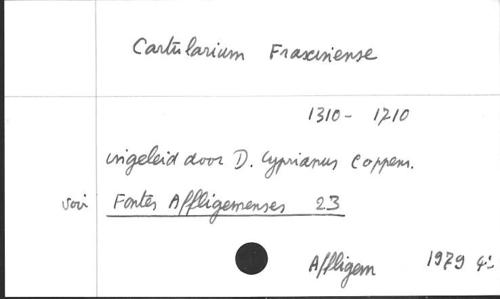 Cartularium Fraxiniense
1310 - 1710
ingeleid door D. Cyprianus Coppens.
voir Fontes Affligemenses 23
Affligem 1979 4°